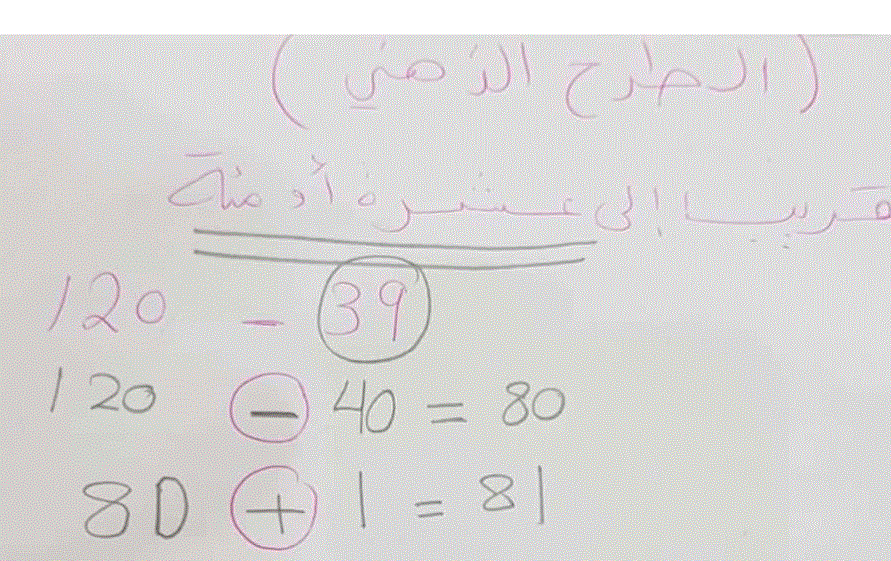 (الطرح الذهني)
قريب إلى عشرة أو مئة
120 - 39
120 - 40 = 80
80 + 1 = 81